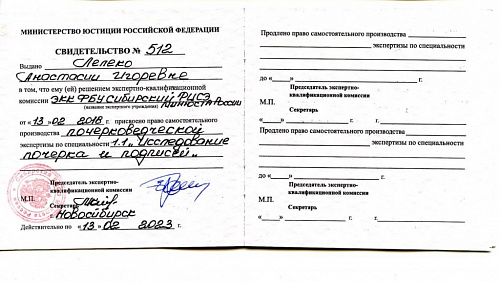 МИНИСТЕРСТВО ЮСТИЦИИ РОССИЙСКОЙ ФЕДЕРАЦИИ
СВИДЕТЕЛЬСТВО № 512
Выдано Лелеко
Анастасии Игоревне
в том, что ему (ей) решением экспертно-квалификационной
комиссии ЭКК ФБУ Сибирский РЦСЭ
(название экспертного учреждения) Минюста России
от «13» 02 2018 г. присвоено право самостоятельного
производства почерковедческой
экспертизы по специальности 1.1 „Исследование
почерка и подписей"
Председатель экспертно-
квалификационной комиссии
М.П.
Секретарь
г. Новосибирск
Действительно по «13» 02 2023 г.
Продлено право самостоятельного производства
экспертизы по специальности
до «___» г.
Председатель экспертно-
квалификационной комиссии
М.П.
Секретарь
«___» г.
Продлено право самостоятельного производства
экспертизы по специальности
до «___» г.
Председатель экспертно-
квалификационной комиссии
М.П.
Секретарь
«___» г.